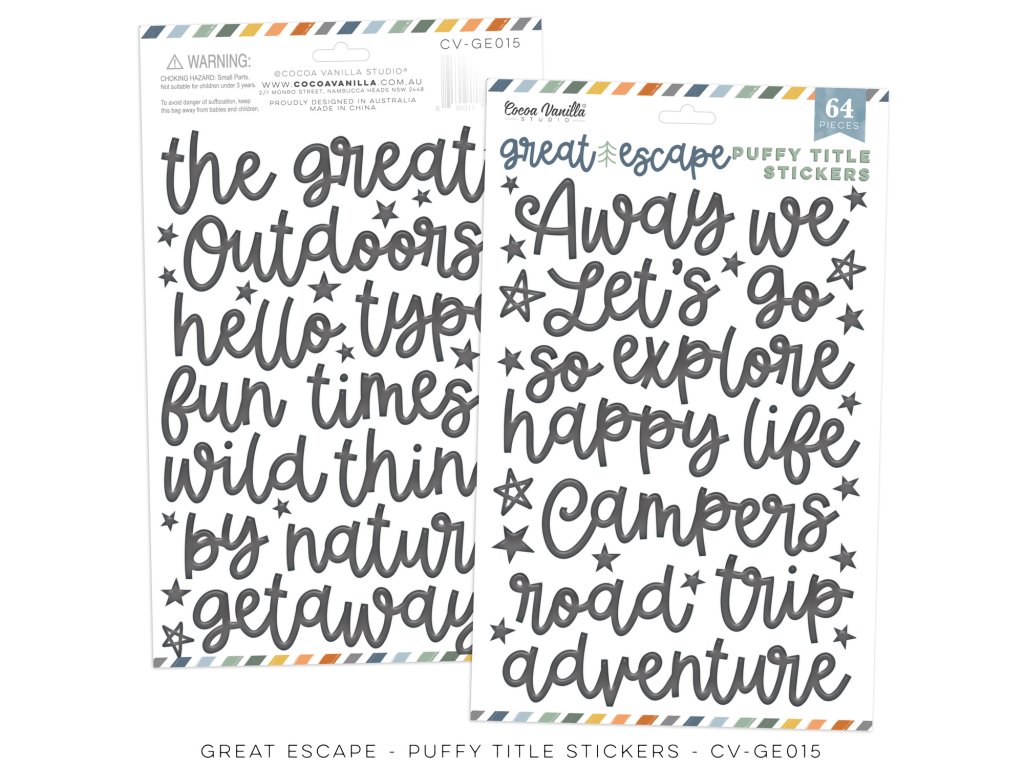 CV-GE015
WARNING:
CHOKING HAZARD: Small Parts.
Not suitable for children under 3 years.
To avoid danger of suffocation, keep
this bag away from babies and children.
©COCOA VANILLA STUDIO®
WWW.COCOAVANILLA.COM.AU
2/1 MONRO STREET, NAMBUCCA HEADS NSW 2448
PROUDLY DESIGNED IN AUSTRALIA
MADE IN CHINA
the great
Outdoors
hello type
fun times
wild thin
by natur
getaway
Cocoa Vanilla
STUDIO
64
PIECES
great escape
PUFFY TITLE
STICKERS
Away we
Let's go
so explore
happy life
Campers
road trip
adventure
GREAT ESCAPE - PUFFY TITLE STICKERS - CV-GE015